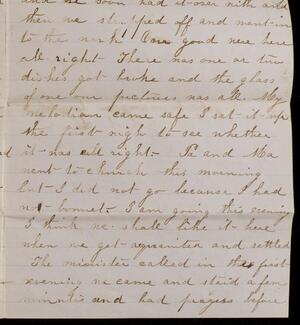 and we soon had it over with and
then we stripped off and went in
to the work Our good new here
all right. There was one or two
dishes got broke and the glass
of one our pictures was all. My
melodian came safe I set it up
the first nigh to see whether
it was all right. Pa and Ma
went to church this morning
but I did not go because I had
no bonnet. I am going this evening
I think we shall like it here
when we get aquainted and settled
The minister called in the first
evening we came and staid a few
minutes and had prayers before